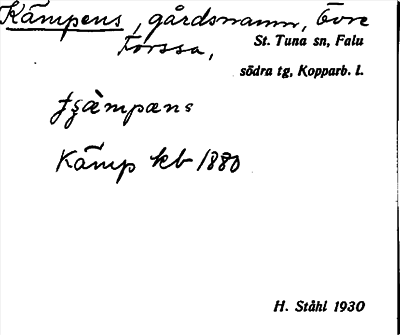 Kämpens, gårdsnamn, Övre
Forssa,
St. Tuna sn, Falu
södra tg, Kopparb. l.
Kämp kb 1880
H. Ståhl 1930